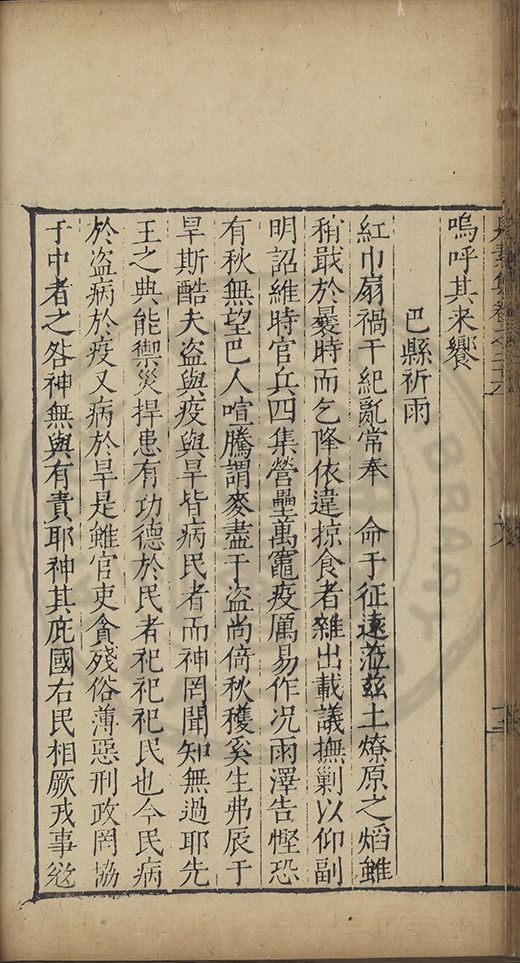 嗚呼其来饗
巴縣祈雨
紅巾扇禍干紀亂常奉 命于征遠蒞茲土燎原之熖雖
稍戢於曩時而乞降依違掠食者雜出載議撫剿以仰副
明詔維時官兵四集營壘萬竈疫厲易作况雨澤告慳恐
有秋無望巴人喧騰謂麥盡于盗尚倚秋穫奚生弗辰于
旱斯酷夫盗與疫與旱皆病民者而神罔聞知無過耶先
王之典能禦災捍患有功德於民者祀祀祀民也今民病
於盗病於疫又病於旱是雖官吏貪殘俗薄惡刑政罔協
于中者之咎神無與有責耶神其庇國右民相厥戎事愆